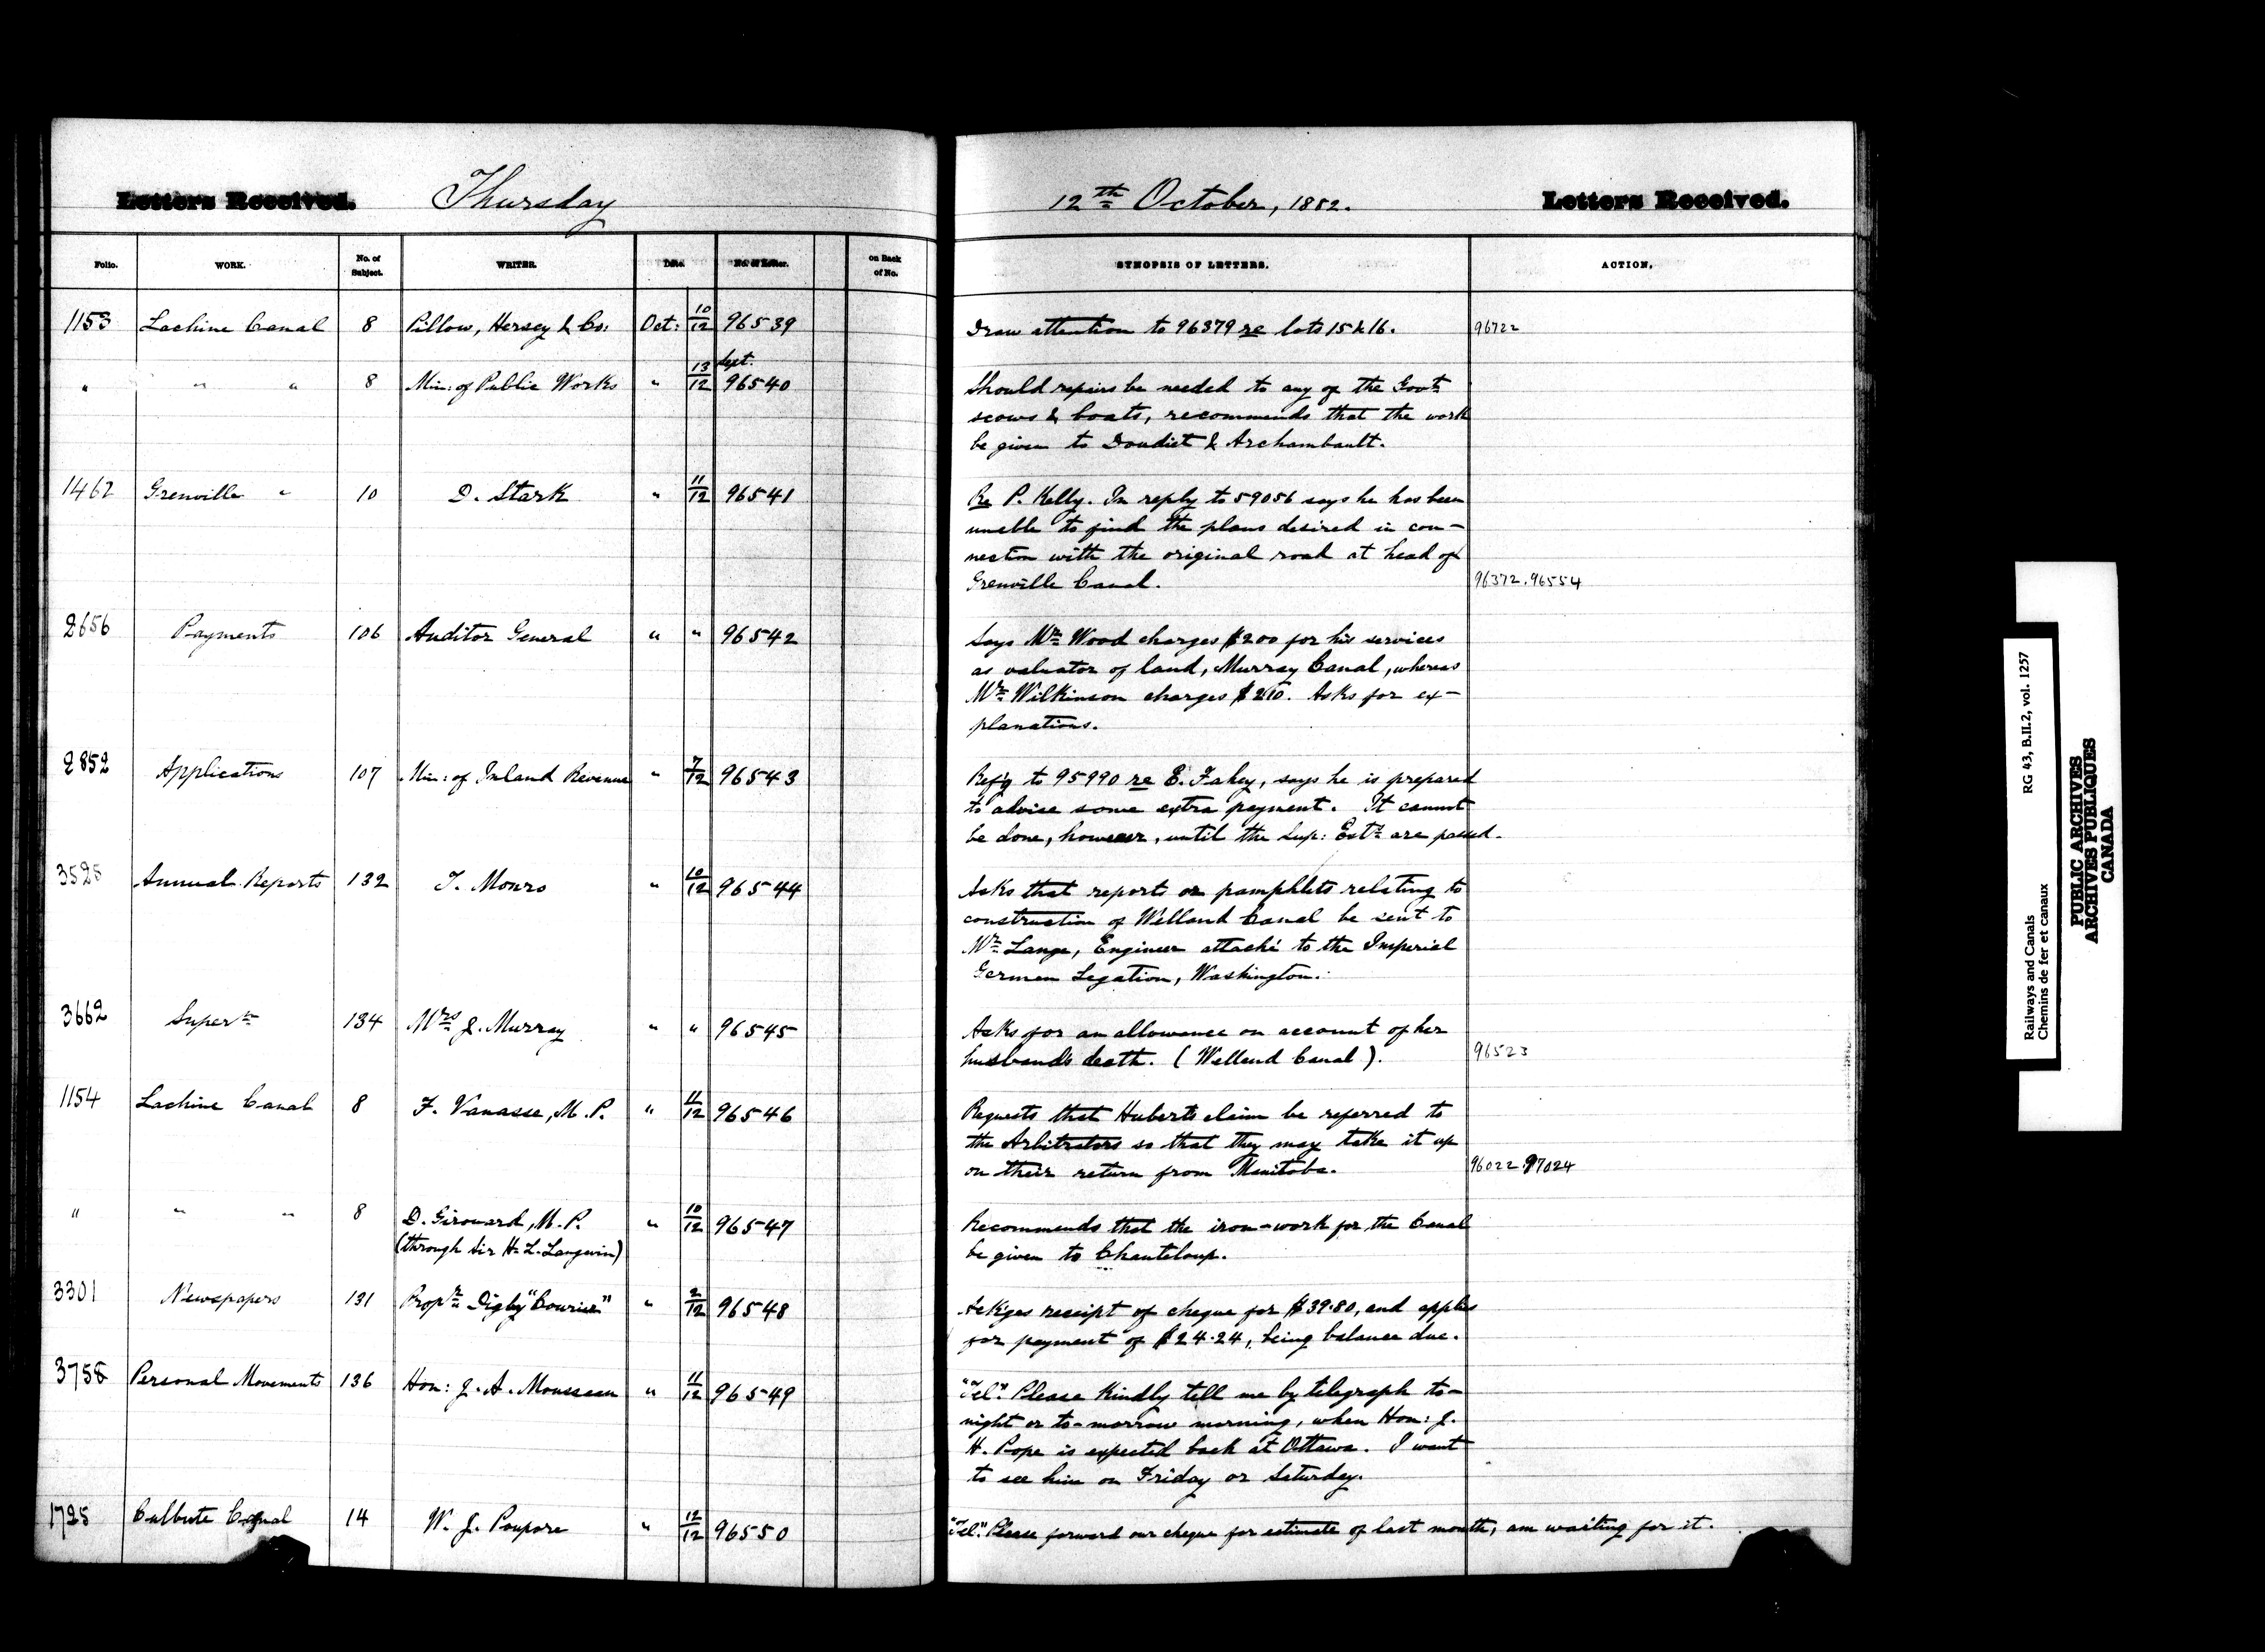 Letters Received. Thursday 12th October, 1882. Letters Received.
Folio. WORK. No. of Subject. WRITER. Date. No. of Letter. on Back of No. SYNOPSIS OF LETTERS. ACTION.
1153 Lachine Canal 8 Pillow, Hersey & Co: Oct: 10/12 96539 Draw attention to 96379 re lots 15 & 16. 96722
" " " 8 Min: of Public Works " 13/12 Sept. 96540 Should repairs be needed to any of the Govt
scows & boats, recommends that the work
be given to Doudiet & Archambault.
1462 Grenville " 10 D. Stark " 11/12 96541 Re P. Kelly. In reply to 59056 says he has been
unable to find the plans desired in con-
nection with the original road at head of
Grenville Canal. 96372. 96554
2656 Payments 106 Auditor General " " 96542 Says Mr Wood charges $200 for his services
as valuator of land, Murray Canal, whereas
Mr Wilkinson charges $210. Asks for ex-
planations.
2852 Applications 107 Min: of Inland Revenue " 7/12 96543 Ref'g to 95990 re E. Fahey, says he is prepared
to advise some extra payment. It cannot
be done, however, until the Sup: Ests are passed.
3528 Annual Reports 132 T. Monro " 10/12 96544 Asks that reports or pamphlets relating to
construction of Welland Canal be sent to
Mr Lange, Engineer attaché to the Imperial
German Legation, Washington.
3662 Super 134 Mrs J. Murray " " 96545 Asks for an allowance on account of her
husband's death. (Welland Canal). 96523
1154 Lachine Canal 8 F. Vanasse, M.P. " 11/12 96546 Requests that Hubert's claim be referred to
the Arbitrators so that they may take it up
on their return from Manitoba. 96022.97024
" " " 8 D. Girouard, M.P. " 10/12 96547 Recommends that the iron-work for the Canal
(through Sir H. L. Langevin) be given to Chanteloup.
3301 Newspapers 131 Propr Digby "Courier" " 2/12 96548 Ack'ges receipt of cheque for $39.80, and applies
for payment of $24.24, being balance due.
3758 Personal Movements 136 Hon: J. A. Mousseau " 11/12 96549 "Tel". Please kindly tell me by telegraph to-
night or to-morrow morning, when Hon: J.
H. Pope is expected back at Ottawa. I want
to see him on Friday or Saturday.
1725 Culbute Canal 14 W. J. Poupore " 12/12 96550 "Tel". Please forward our cheque for estimate of last month, am waiting for it.
Railways and Canals RG 43, B.II.2, vol. 1257
Chemins de fer et canaux
PUBLIC ARCHIVES
ARCHIVES PUBLIQUES
CANADA